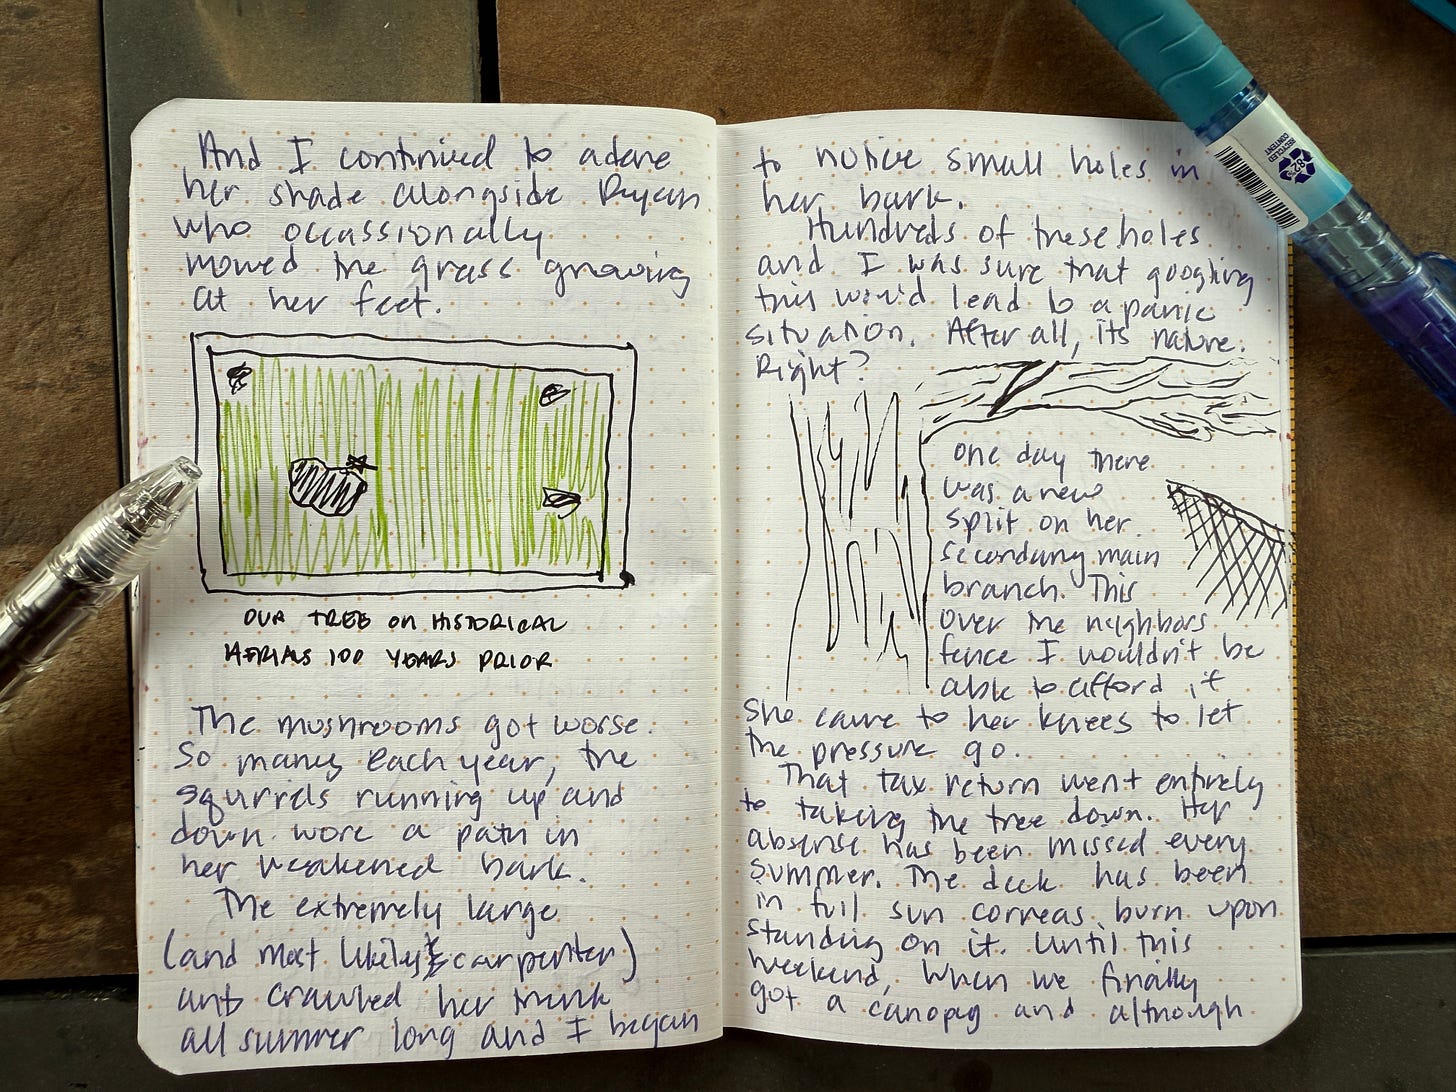 And I continued to adore
her shade alongside Ryan
who occassionally
mowed the grass growing
at her feet.
OUR TREE ON HISTORICAL
AERIALS 100 YEARS PRIOR
The mushrooms got worse.
So many each year, the
squirrels running up and
down wore a path in
her weakened bark.
The extremely large
(and most likely carpenter)
ants crawled her trunk
all summer long and I began
to notice small holes in
her bark.
Hundreds of these holes
and I was sure that googling
this would lead to a panic
situation. After all, its nature.
Right?
One day there
was a new
split on her
secondary main
branch. This
over the neighbors
fence I wouldn't be
able to afford it
She came to her knees to let
the pressure go.
That tax return went entirely
to taking the tree down. Her
absense has been missed every
summer. The deck has been
in full sun corneas burn upon
standing on it. Until this
weekend, when we finally
got a canopy and although
RECYCLED
CONTENT
82%